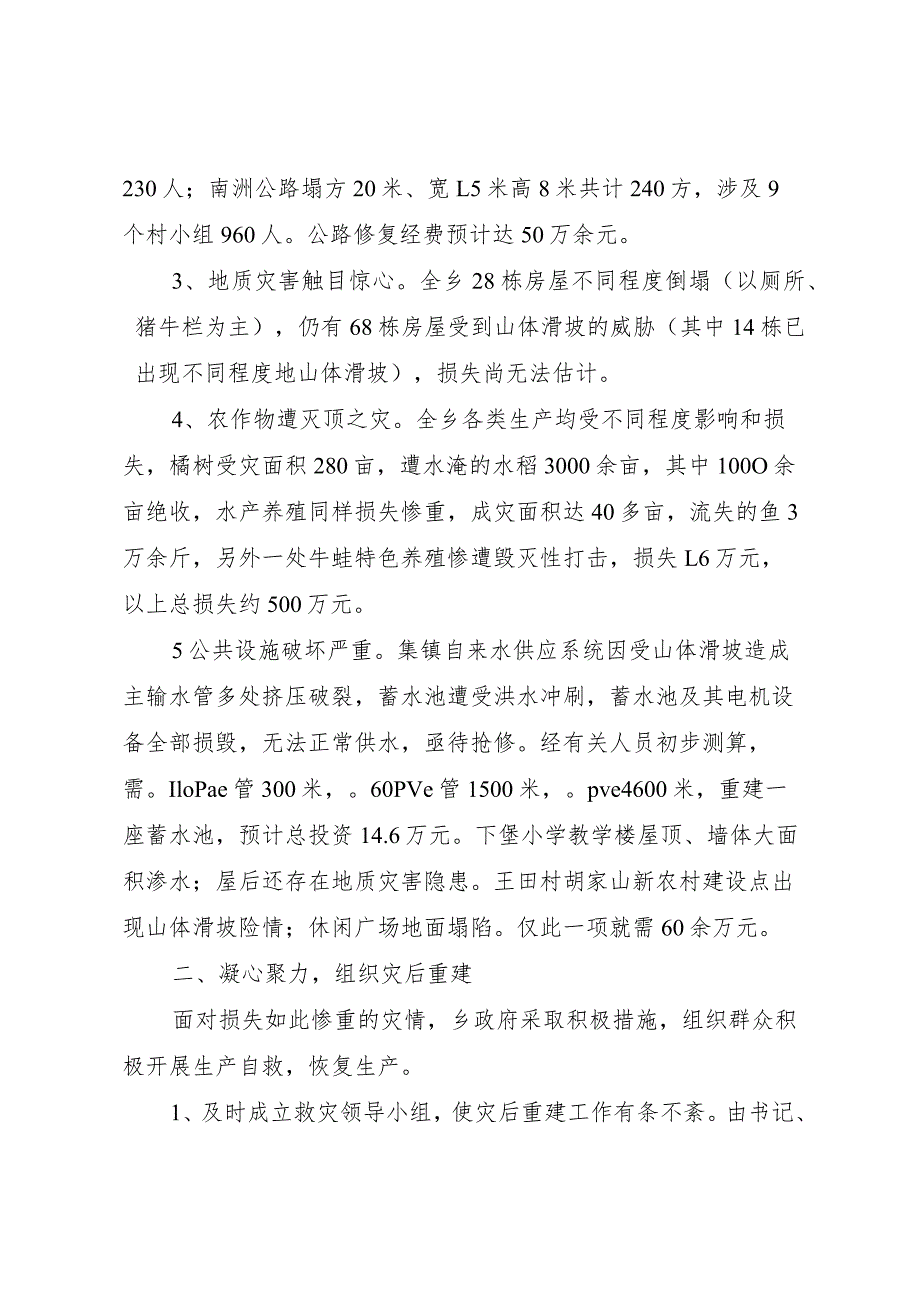 230 人；南洲公路塌方 20 米、宽 L5 米高 8 米共计 240 方，涉及 9
个村小组 960 人。公路修复经费预计达 50 万余元。
3、地质灾害触目惊心。全乡 28 栋房屋不同程度倒塌（以厕所、
猪牛栏为主），仍有 68 栋房屋受到山体滑坡的威胁（其中 14 栋已
出现不同程度地山体滑坡），损失尚无法估计。
4、农作物遭灭顶之灾。全乡各类生产均受不同程度影响和损
失，橘树受灾面积 280 亩，遭水淹的水稻 3000 余亩，其中 100O 余
亩绝收，水产养殖同样损失惨重，成灾面积达 40 多亩，流失的鱼 3
万余斤，另外一处牛蛙特色养殖惨遭毁灭性打击，损失 L6 万元，
以上总损失约 500 万元。
5 公共设施破坏严重。集镇自来水供应系统因受山体滑坡造成
主输水管多处挤压破裂，蓄水池遭受洪水冲刷，蓄水池及其电机设
备全部损毁，无法正常供水，亟待抢修。经有关人员初步测算，
需。IloPae 管 300 米，。60PVe 管 1500 米，。pve4600 米，重建一
座蓄水池，预计总投资 14.6 万元。下堡小学教学楼屋顶、墙体大面
积渗水；屋后还存在地质灾害隐患。王田村胡家山新农村建设点出
现山体滑坡险情；休闲广场地面塌陷。仅此一项就需 60 余万元。
二、凝心聚力，组织灾后重建
面对损失如此惨重的灾情，乡政府采取积极措施，组织群众积
极开展生产自救，恢复生产。
1、及时成立救灾领导小组，使灾后重建工作有条不紊。由书记、